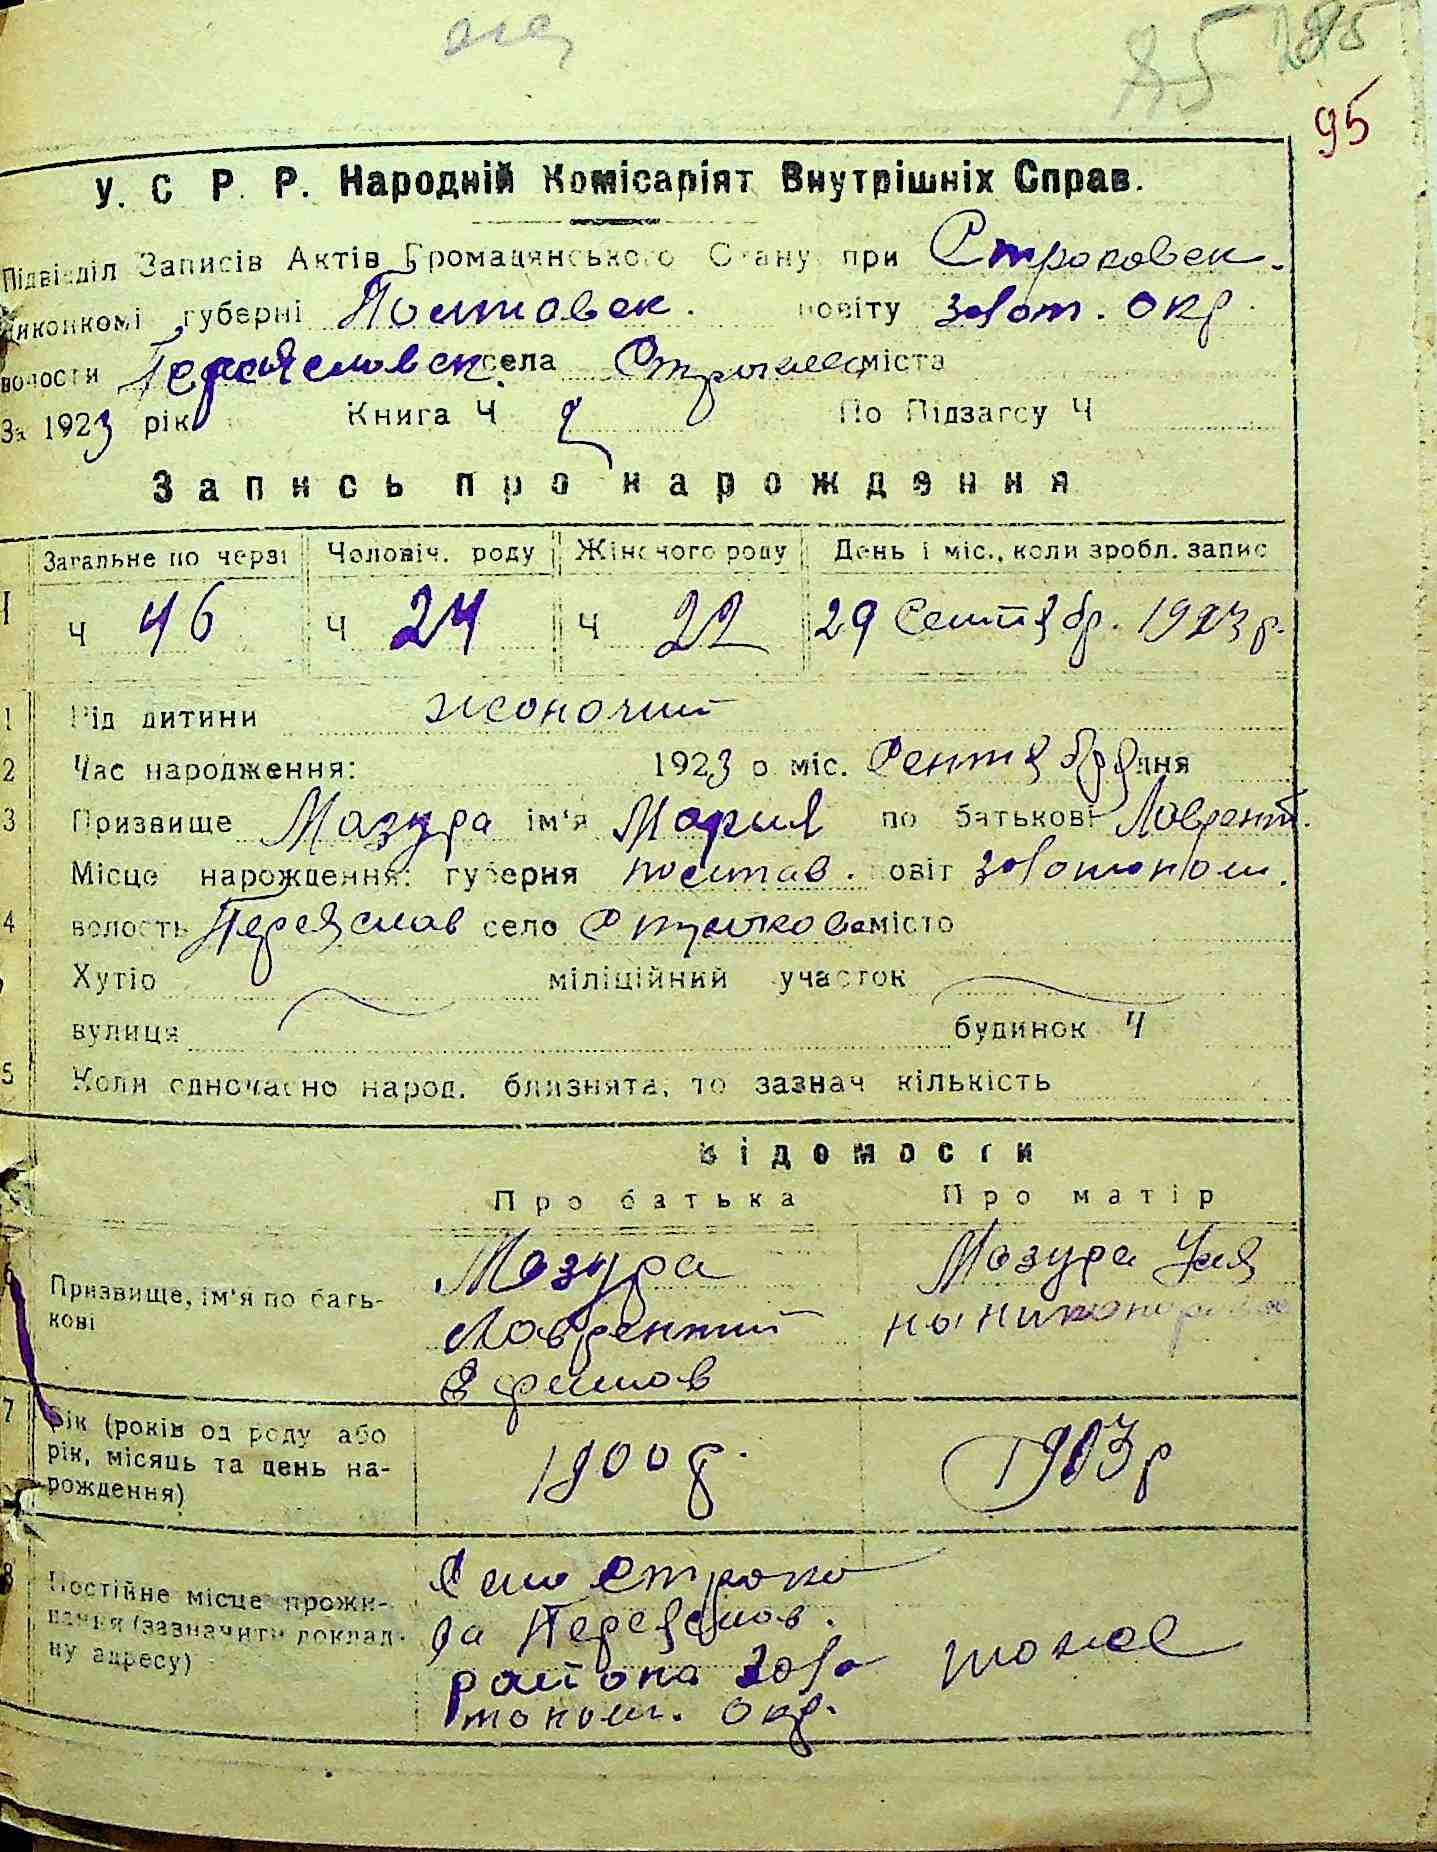 95
У. С Р. Р. Народній Комісаріят Внутрішніх Справ.
Підвідділ Записів Актів Громадянського Стану при Строковск.
виконкомі губерні Полтавск. повіту Золот. окр.
волости Переяславск. села Строкова міста
За 1923 рік Книга Ч 2 По Підзагсу Ч
Запись про нарождення
Загальне по черзі Чоловіч. роду Жіночого роду День і міс., коли зробл. запис
Ч 46 Ч 24 Ч 22 29 Сентябр. 1923 р.
1 Рід дитини жоночий
2 Час народження: 1923 о міс. Сентября дня
3 Призвище Мазура ім'я Мария по батькові Лаврент.
Місце нарождення: губерня Полтав. повіт Золотонош.
4 волость Переяслав село місто
Хутір міліційний участок
вулиця будинок Ч
5 Коли одночасно народ. близнята, то зазнач кількість
Відомости
Про батька Про матір
6 Призвище, ім'я по бать- Мазура Мазура Улья
кові Лаврентий ны
Ефимов
7 Вік (років од роду або 1900 р. 1903 р
рік, місяць та день на-
рождення)
8 Постійне місце прожи- Село Строко
вання (зазначити доклад- ва Переяслав.
ну адресу) района Золо тоже
тонош. окр.